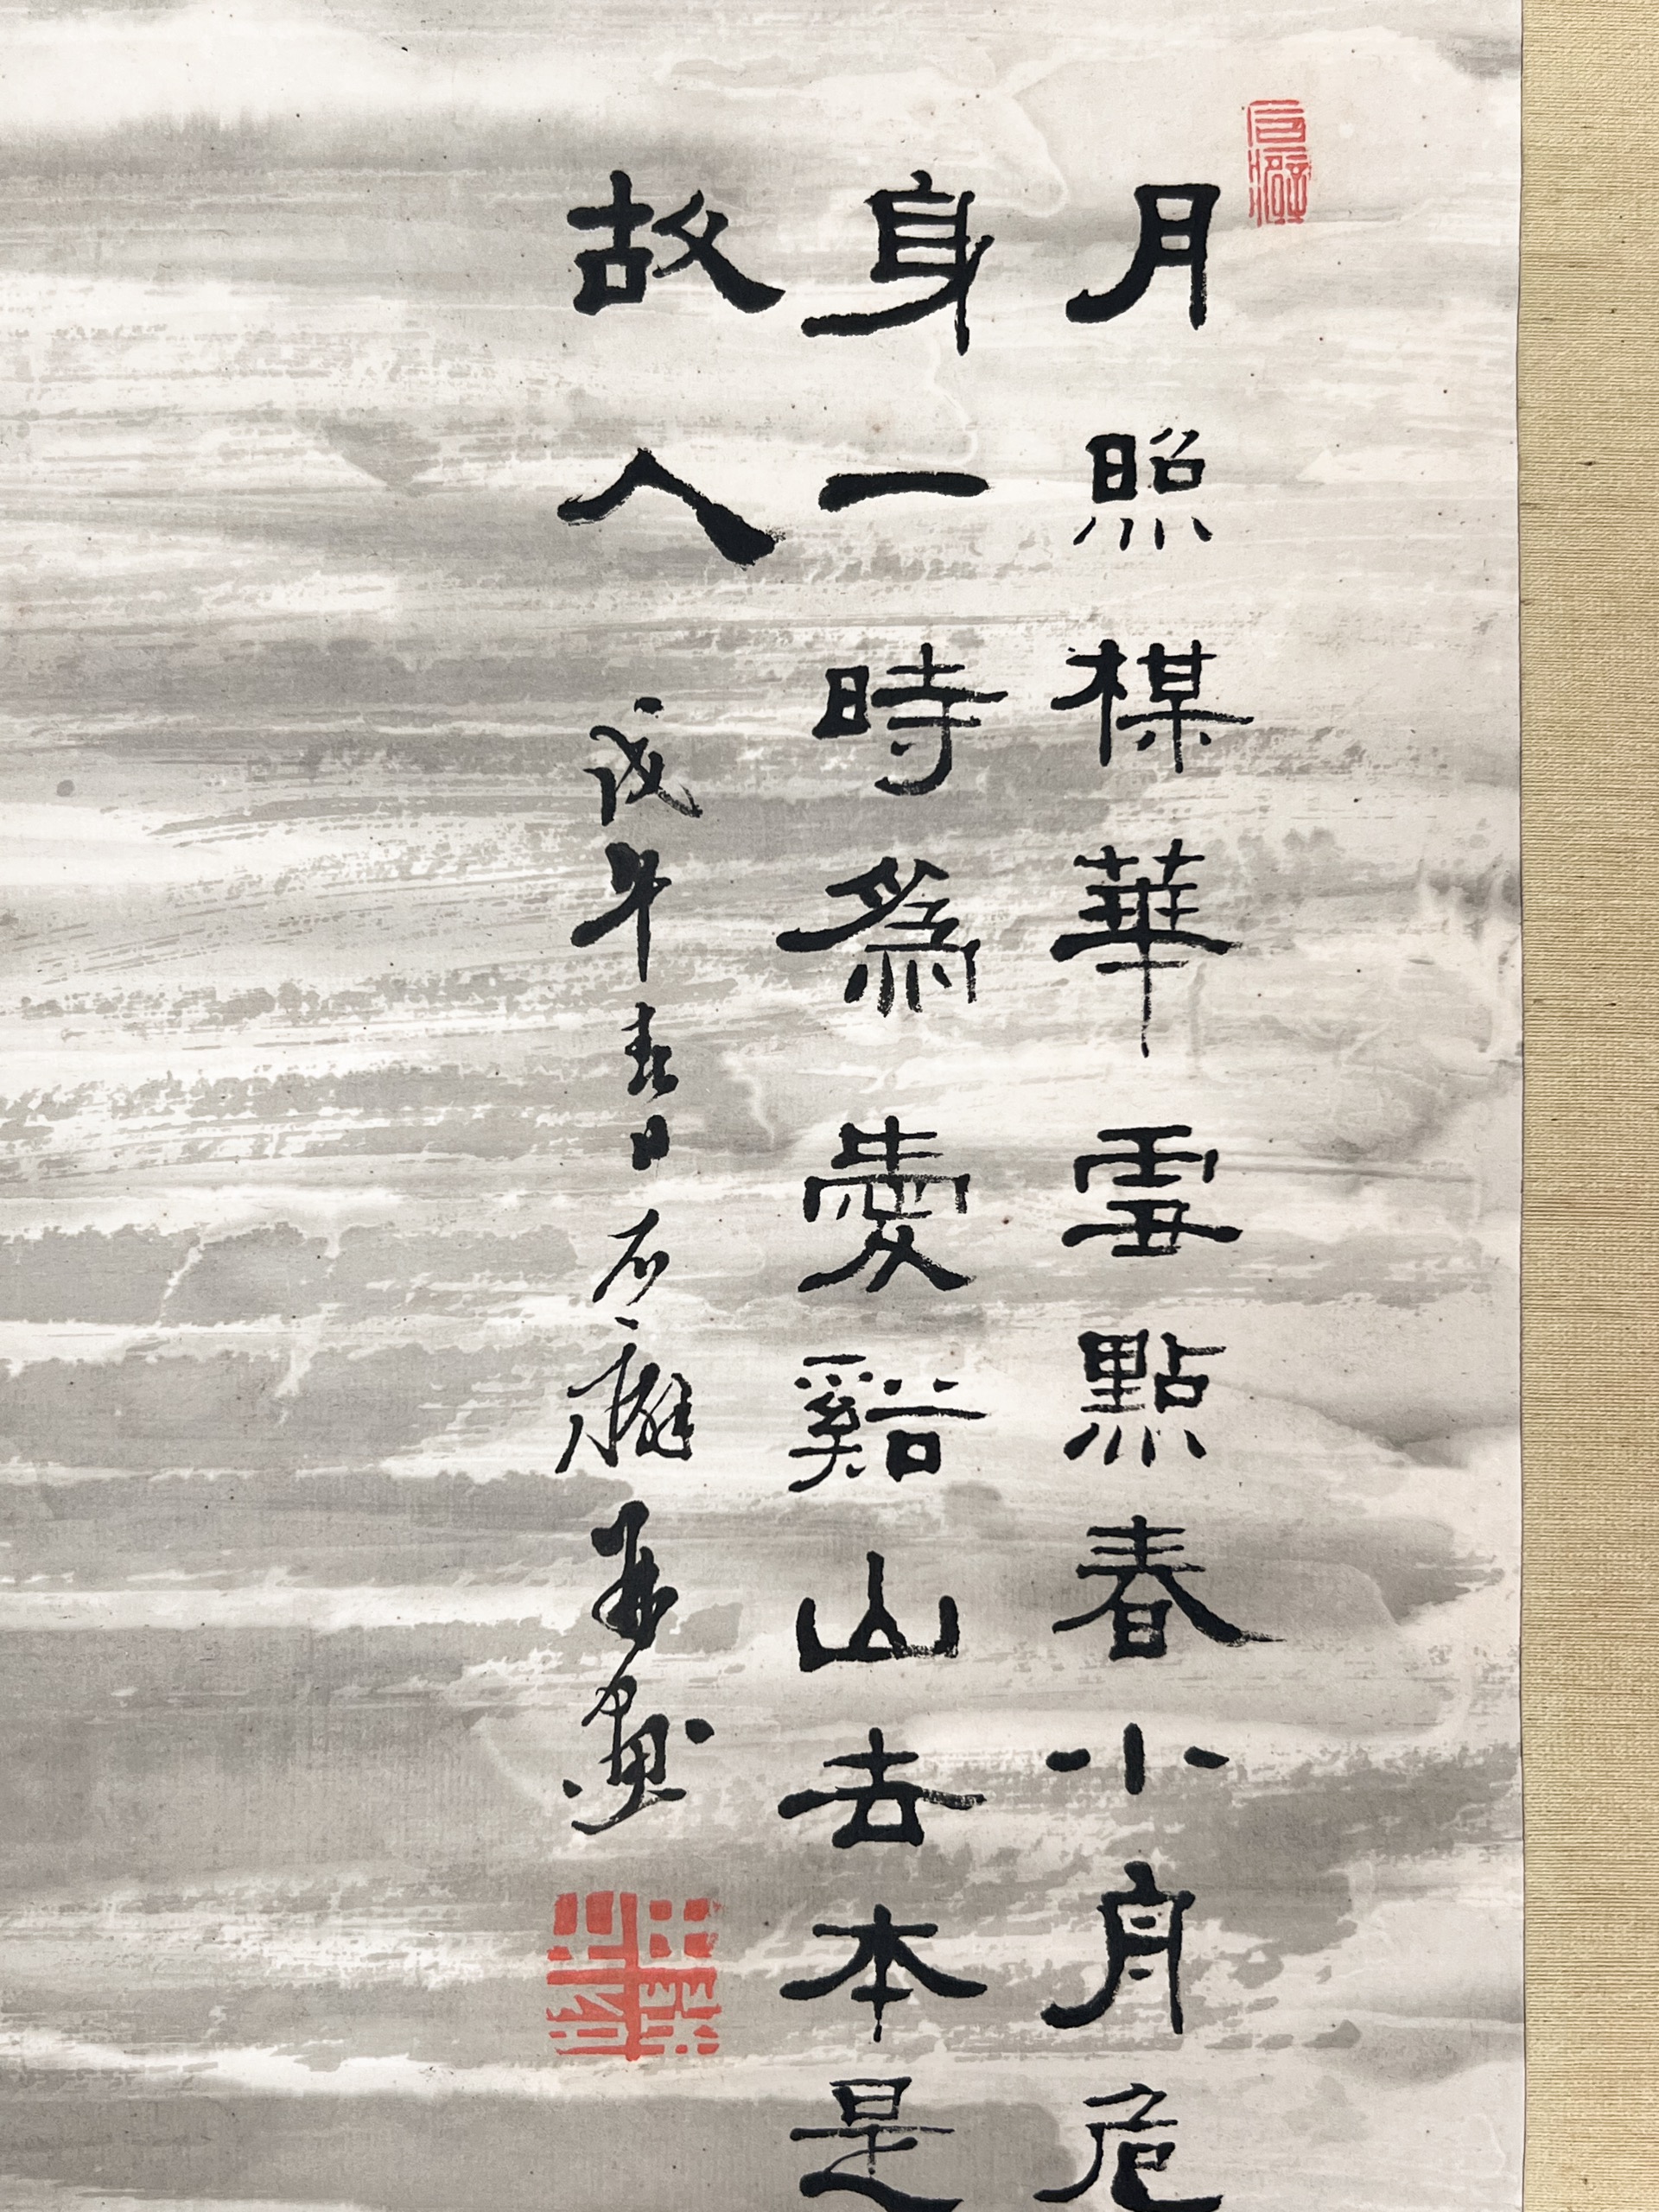 月照楳華雪點春小舟危
身一時為愛谿山去本是
故人 戊午春日石癡畫